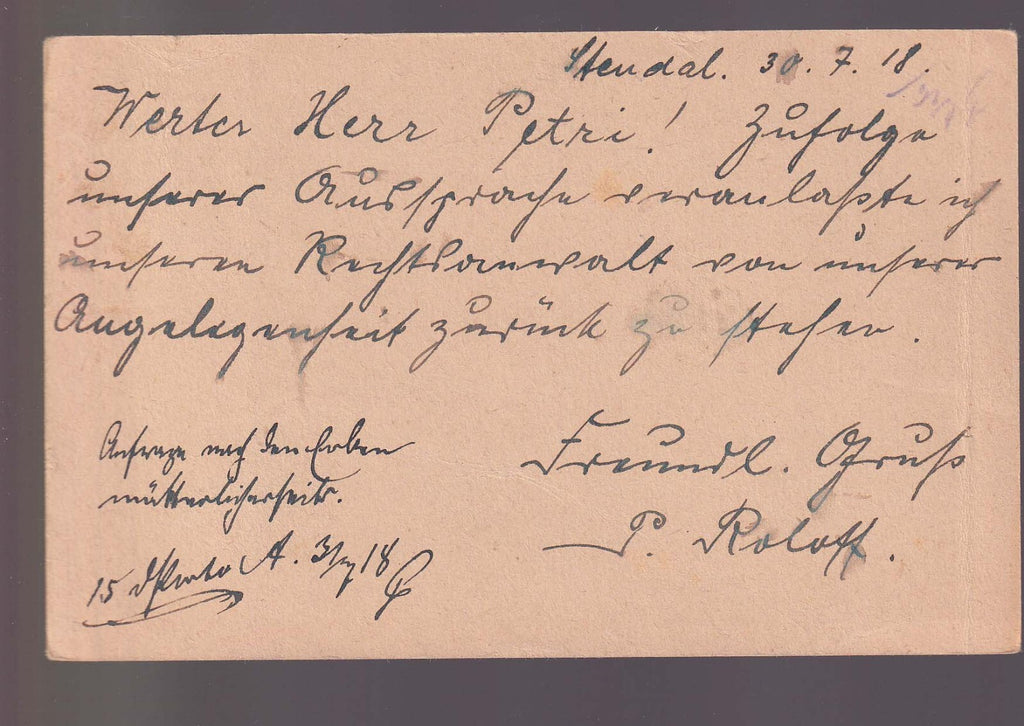 Stendal. 30.7.18.
Werter Herr Petri! Zufolge
unserer Aussprache veranlaßte ich
unseren Rechtsanwalt von unserer
Angelegenheit zurück zu stehen.
Freundl. Gruß
P. Roloff.
Anfrage nach den Erben
mütterlicherseits.
15 d Porto A. 31/7 18